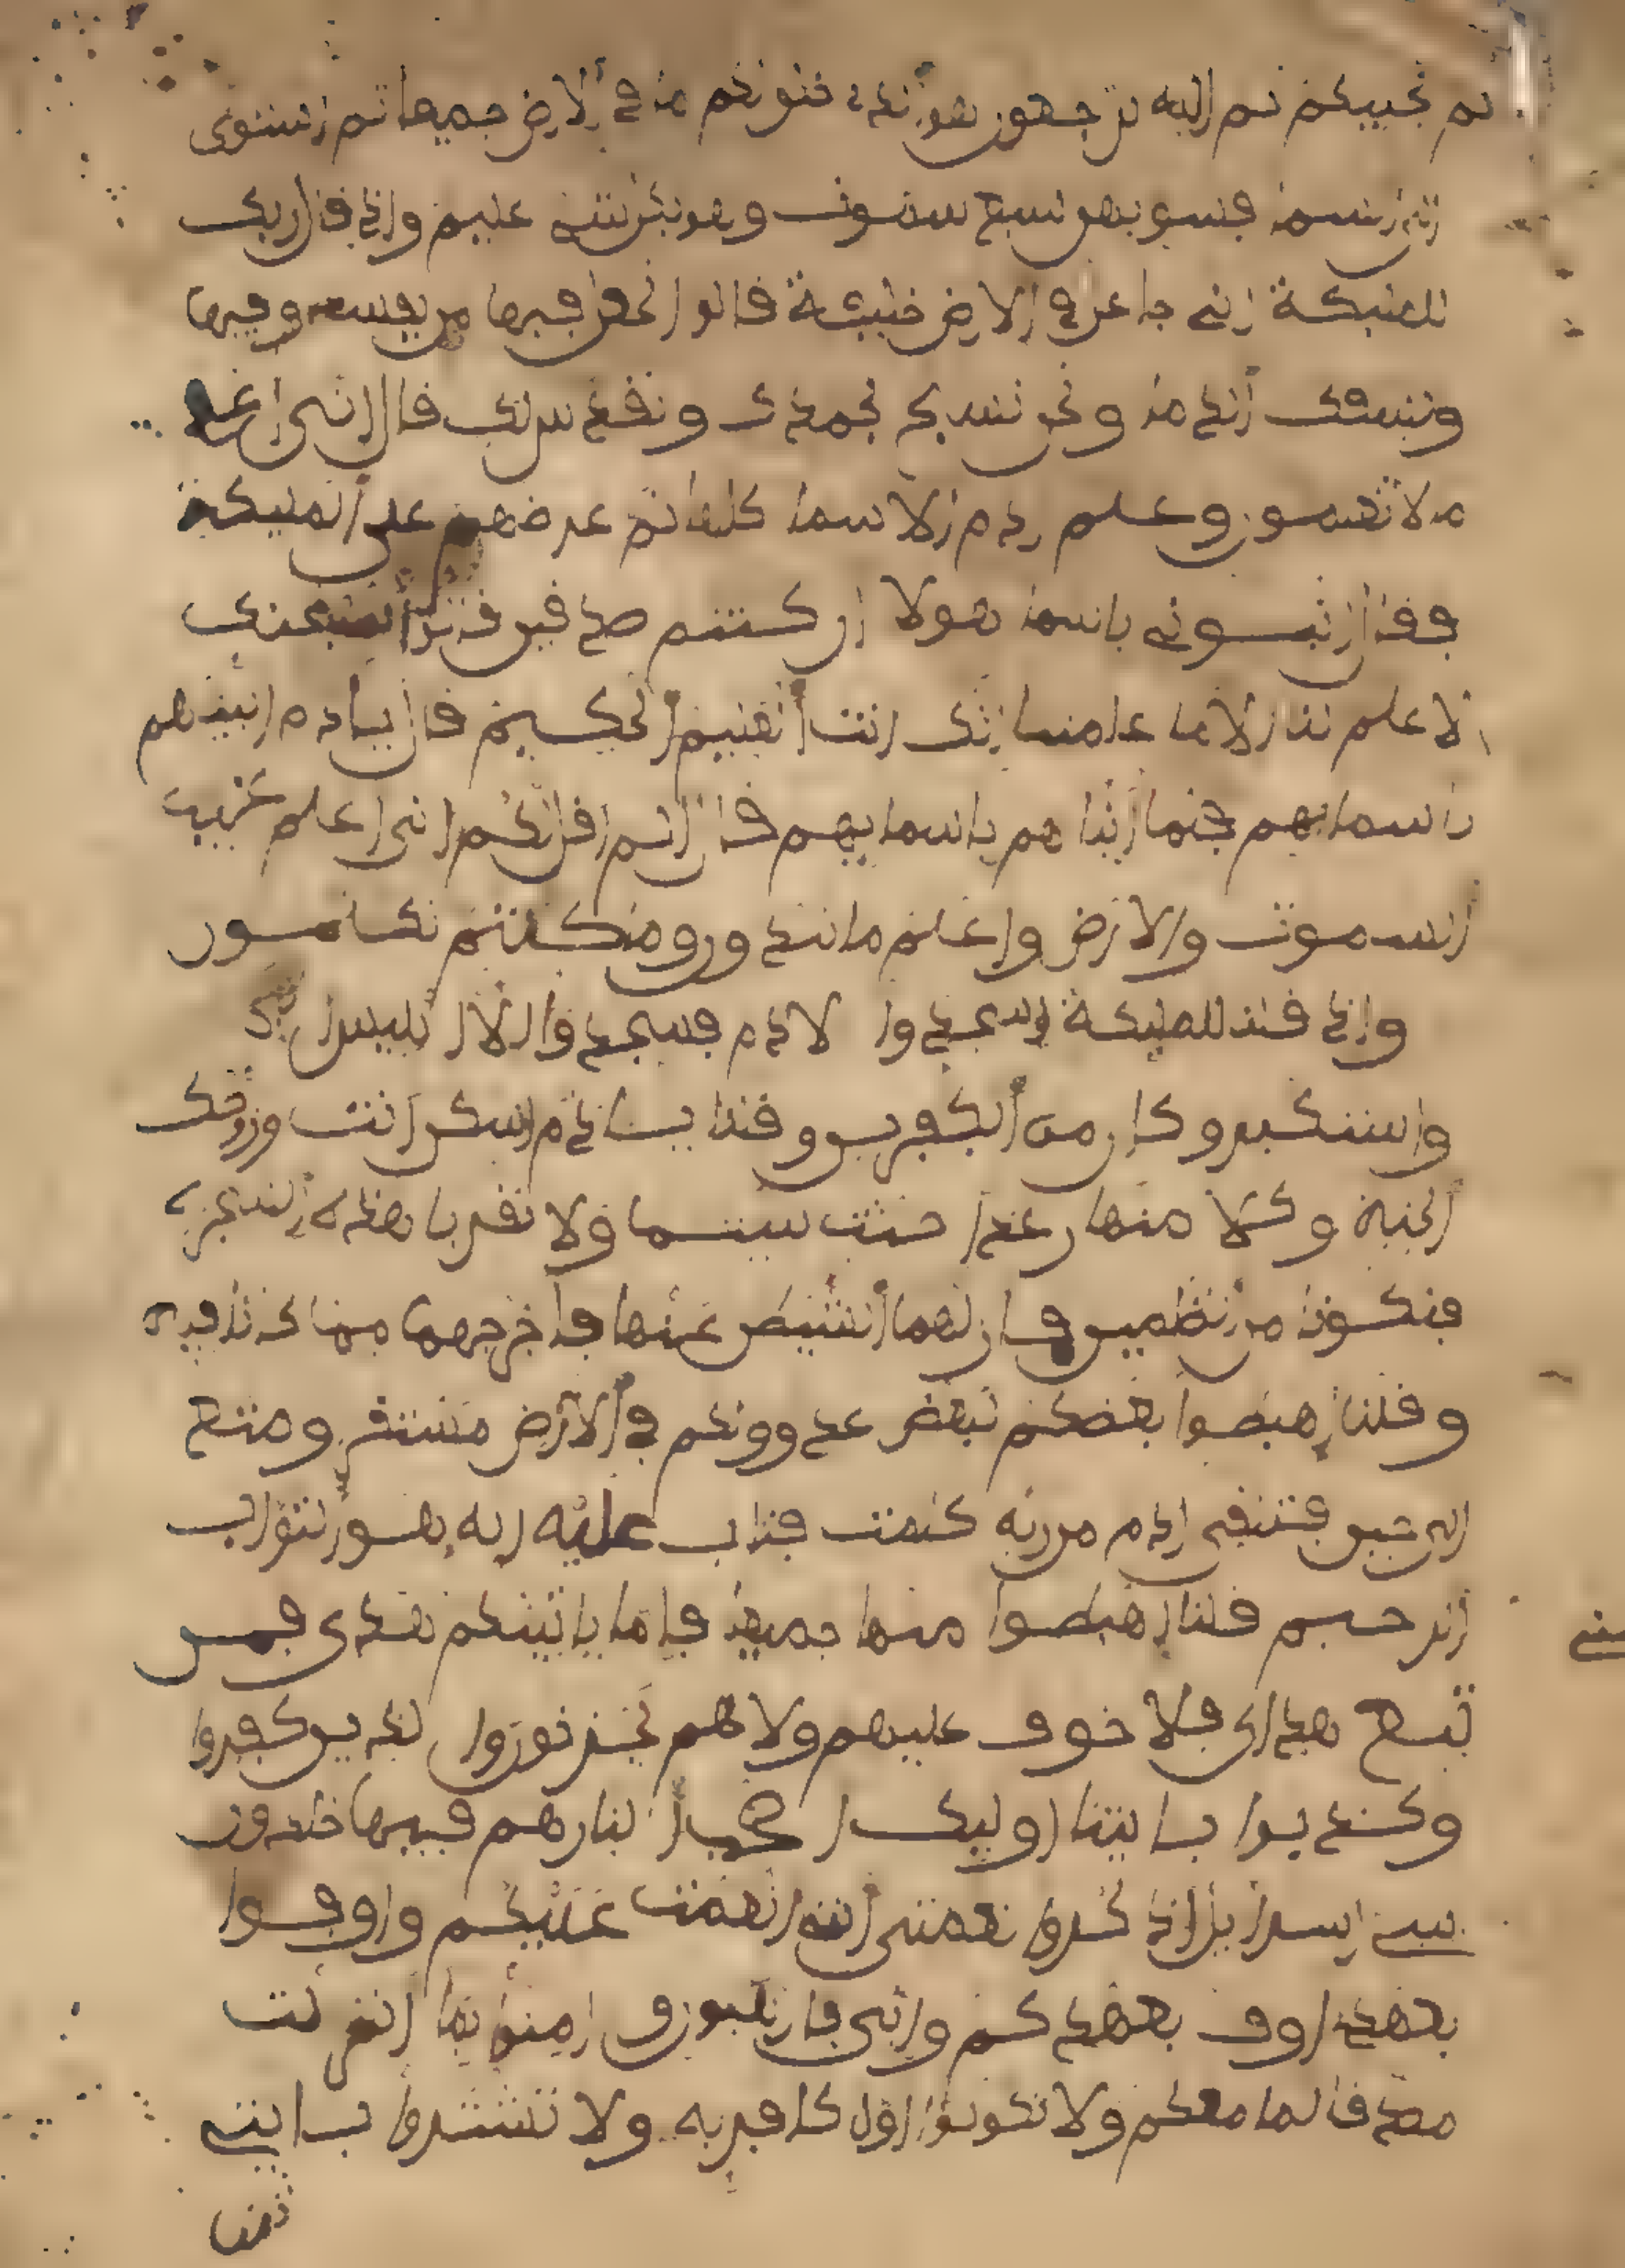 ثم يحييكم ثم إليه ترجعون هو الذي خلق لكم ما في الارض جميعا ثم استوى
إلى السما فسويهن سبع سموت وهو بكل شي عليم وإذ قال ربك
للمليكة إني جاعل في الارض خليفة قالوا أتجعل فيها من يفسد فيها
ويسفك الدما ونحن نسبح بحمدك ونقدس لك قال إني أعلم
ما لا تعلمون وعلم ادم الاسما كلها ثم عرضهم على المليكة
فقال أنبوني باسما هولا إن كنتم صدقين قالوا سبحنك
لا علم لنا إلا ما علمتنا إنك أنت العليم الحكيم قال يادم أنبيهم
باسمايهم فلما أنباهم باسمايهم قال ألم أقل لكم إني أعلم غيب
السموت والارض وأعلم ما تبدون وما كنتم تكتمون
وإذ قلنا للمليكة اسجدوا لادم فسجدوا إلا إبليس أبى
واستكبر وكان من الكفرين وقلنا يادم اسكن أنت وزوجك
الجنة وكلا منها رغدا حيث شيتما ولا تقربا هذه الشجرة
فتكونا من الظلمين فازلهما الشيطن عنها فأخرجهما مما كانا فيه
وقلنا اهبطوا بعضكم لبعض عدو ولكم في الارض مستقر ومتع
إلى حين فتلقى ادم من ربه كلمت فتاب عليه إنه هو التواب
الرحيم قلنا اهبطوا منها جميعا فإما ياتينكم مني هدى فمن
تبع هداي فلا خوف عليهم ولا هم يحزنون والذين كفروا
وكذبوا بايتنا أوليك أصحب النار هم فيها خلدون
يبني إسرايل اذكروا نعمتي التي أنعمت عليكم وأوفوا
بعهدي أوف بعهدكم وإيي فارهبون وامنوا بما أنزلت
مصدقا لما معكم ولا تكونوا أول كافر به ولا تشتروا بايتي
ثمنا